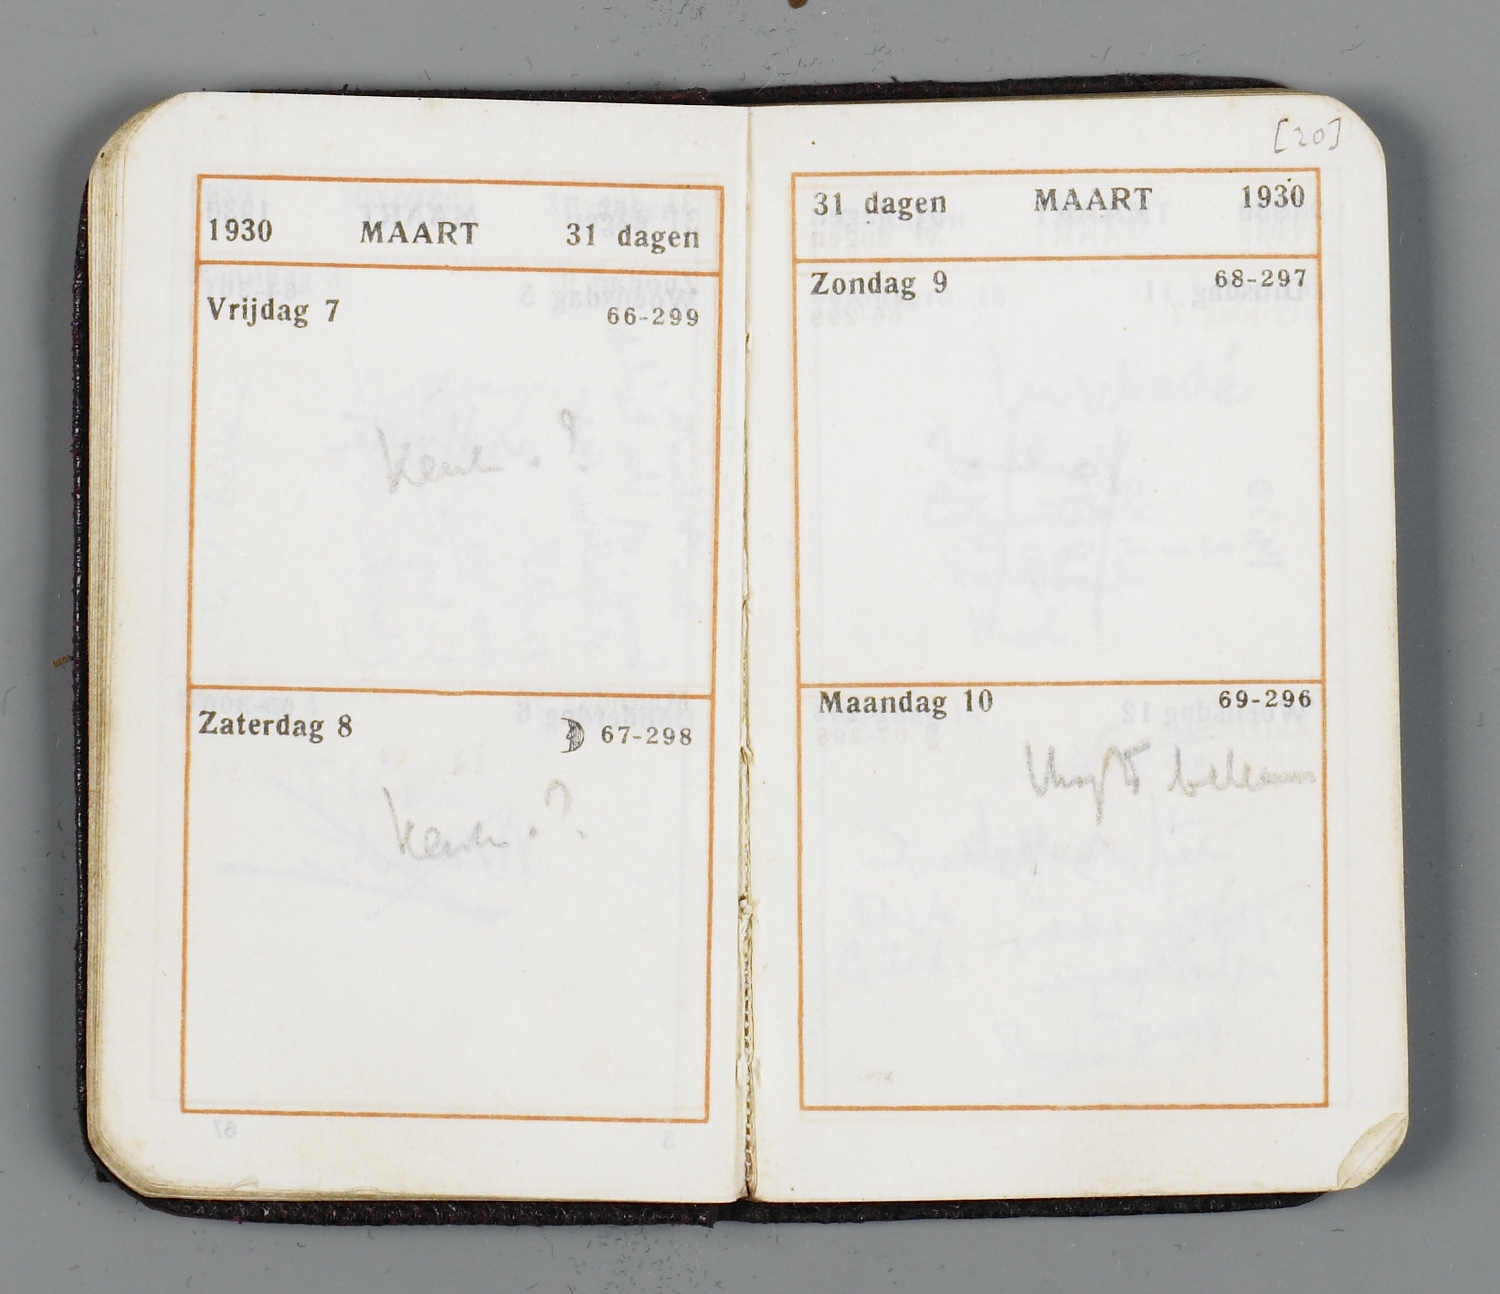 1930 MAART 31 dagen
Vrijdag 7 66-299
. ?
Zaterdag 8 67-298
. ?
[20]
31 dagen MAART 1930
Zondag 9 68-297
Maandag 10 69-296